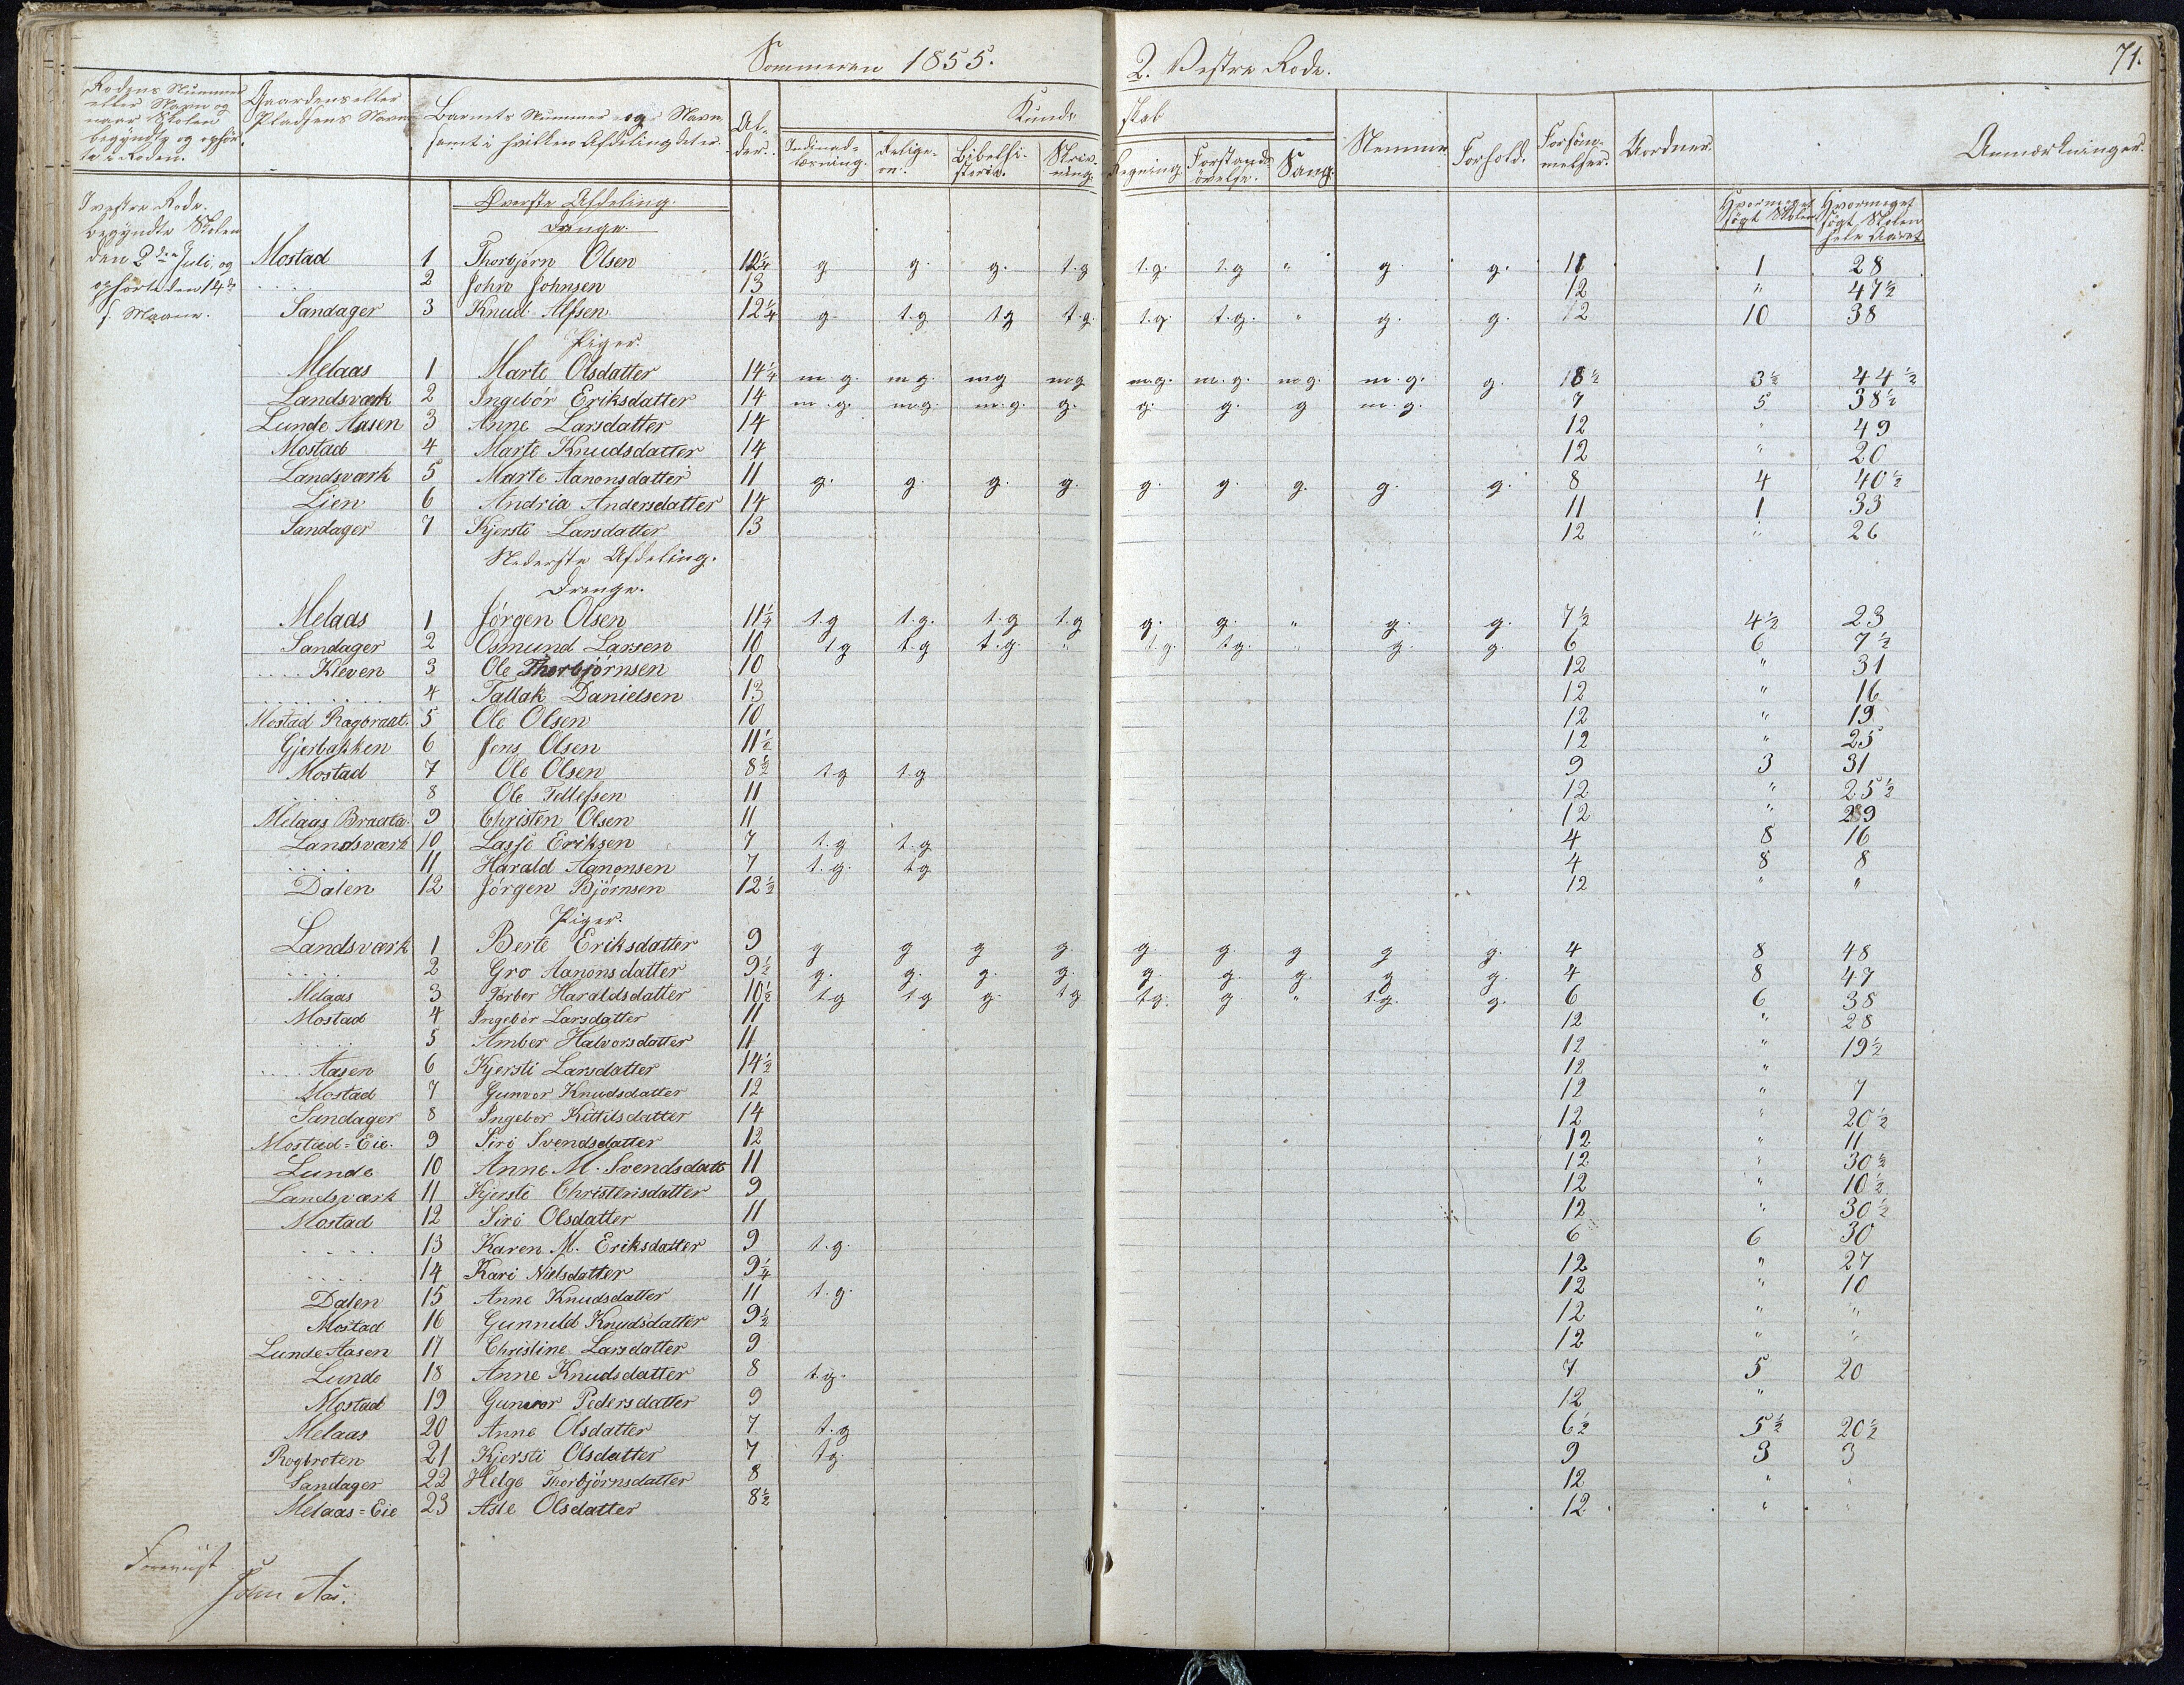 Sommeren 1855.
2. Vestre Rode.
71.
Rodens Nummer eller Navn og naar Skolen begyndte og ophørte i Roden.
Gaardens eller Pladsens Navn
Barnets Nummer og Navn samt i hvilken Afdeling det er.
Alder.
Kundskab
Indenadlæsning.
Religion.
Bibelhistorie.
Skrivning.
Regning.
Forstandsøvelse.
Sang.
Nemme.
Forhold.
Forsømmelser.
Uordner.
Anmærkninger.
Hvormeget søgt Skolen
Hvormeget søgt Skolen hele Aaret.
I vestre Rode.
begyndte Skolen
den 2den Juli, og
ophørte den 14de
s. Maane.
Øverste Afdeling.
Drenge.
Mostad 1 Thorbjørn Olsen 12¼ g g. g. t.g t.g. t.g " g g. 11 1 28
..... 2 John Johnsen 13 12 " 47½
Sandager 3 Knud Alfsen 12¼ g. t.g t.g t.g. t.g. t.g. " g. g. 12 10 38
Piger.
Melaas 1 Marte Olsdatter 14¼ m.g. m.g. m.g m.g m.g. m.g. m.g. m.g. g. 8½ 3½ 44½
Landsværk 2 Ingebór Eriksdatter 14 m.g. m.g. m.g. g. g. g. g m.g. 7 5 38½
Lunde Aasen 3 Anne Larsdatter 14 12 " 49
Mostad 4 Marte Knudsdatter 14 12 " 20
Landsværk 5 Marte Aanonsdatter 11 g. g. g. g. g. g. g. g. g. 8 4 40½
Lien 6 Andria Andersdatter 14 11 1 33
Sandager 7 Kjersti Larsdatter 13 12 " 26
Nederste Afdeling.
Drenge.
Melaas 1 Jórgen Olsen 11¼ t.g t.g. t.g t.g g. g. " g. g. 7½ 4½ 23
Sandager 2 Osmund Larsen 10 t.g t.g t.g. " t.g. t.g. " g. g. 6 6 7½
.... Kleven 3 Ole Thorbjórnsen 10 12 " 31
.......... 4 Tallak Danielsen 13 12 " 16
Mostad Rogbraat. 5 Ole Olsen 10 12 " 19
Gjerbakken 6 Jens Olsen 11½ 12 " 25
Mostad 7 Ole Olsen 8½ t.g t.g 9 3 31
..... 8 Ole Tellefsen 11 12 " 25½
Melaas Braata. 9 Christen Olsen 11 12 " 29
Landsværk 10 Lasse Eriksen 7 t.g t.g 4 8 16
..... 11 Harald Aanonsen 7 t.g. t.g 4 8 8
Dalen 12 Jórgen Bjórnsen 12½ 12 " "
Piger.
Landsværk 1 Berte Eriksdatter 9 g g g g. g. g. g g g. 4 8 48
..... 2 Gro Aanonsdatter 9½ g. g. g. g. g. g. g. g g. 4 8 47
Melaas 3 Torbor Haraldsdatter 10½ t.g t.g g. t.g t.g. g. " t.g. g. 6 6 38
Mostad 4 Ingebór Larsdatter 11 12 " 28
..... 5 Amber Halvorsdatter 11 12 " 19½
.... Aasen 6 Kjersti Larsdatter 14½ 12 "
Mostad 7 Gunvor Knudsdatter 12 12 " 7
Sandager 8 Ingebor Kittilsdatter 14 12 " 20½
Mostad=Eie. 9 Siri Svendsdatter 12 12 " 11
Lunde 10 Anne M. Svendsdatt 11 12 " 30½
Landsværk 11 Kjersti Christensdatter 9 12 " 10½
Mostad 12 Siri Olsdatter 11 12 " 30½
.... 13 Karen M. Eriksdatter 9 t.g. 6 6 30
.... 14 Kari Nielsdatter 9¼ 12 " 27
Dalen 15 Anne Knudsdatter 11 t.g. 12 " 10
Mostad 16 Gunnild Knudsdatter 9½ 12 " "
Lunde Aasen 17 Christine Larsdatter 9 12 " "
Lunde 18 Anne Knudsdatter 8 t.g. 7 5 20
Mostad 19 Gunvor Pedersdatter 9 12 "
Melaas 20 Anne Olsdatter 7 t.g 6½ 5½ 20½
Rogbroten 21 Kjersti Olsdatter 7 t.g. 9 3 3
Sandager 22 Helge Thorbjórnsdatter 8 12 "
Melaas=Eie 23 Asle Olsdatter 8½ 12 "
John Aas.